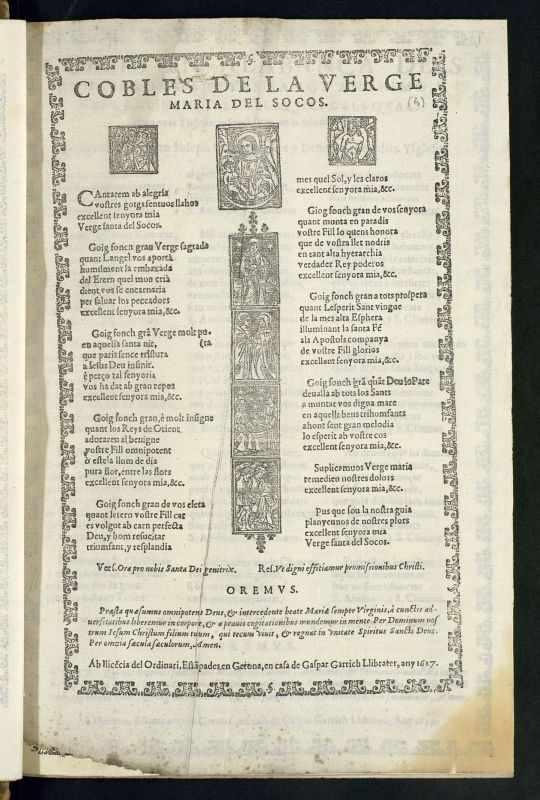 COBLES DE LA VERGE
MARIA DEL SOCOS.
(4)
CAntarem ab alegria
vostres gotgs sentuos llahos
excellent senyora mia
Verge santa del Socos.
Goig fonch gran Verge sagrada
quant Langel vos aportà
humilment la embaxada
del Etern quel mon crià
dient vos se encarnaria
per saluar los peccadors
excellent senyora mia,&c.
Goig fonch grã Verge molt pu-
en aquella santa nit, (ra
que paris sence
a Iesus Deu infinit.
è perço tal senyoria
vos ha dat ab gran repos
excellent senyora mia,&c.
Goig fonch gran,è molt insigne
quant los Reys de Orient
adoraren al benigne
vostre Fill omnipotent
ò estela llum de dia
pura flor,entre las flors
excellent senyora mia,&c.
Goig fonch gran de vos eleta
quant letern vostre Fill car
es volgut ab carn perfecta
Deu,y hom resucitar
triumfant,y resplandia
mes quel Sol,y les claros
excellent senyora mia,&c.
Giog fonch gran de vos senyora
quant munta en paradis
vostre Fill lo quens honora
que de vostra llet nodris
en sant alta hyerarchia
verdader Rey poderos
excellent senyora mia,&c.
Goig fonch gran a tots prospera
quant Lesperit Sant vingue
de la mes alta Esphera
illuminant la santa Fé
als Apostols companya
de vostre Fill glorios
excellent senyora mia,&c.
Goig fonch grã quãt Deu lo Pare
deuallà ab tots los Sants
a muntar vos digna mare
en aquells bens triumfants
ahont sent gran melodia
lo esperit ab vostre cos
excellent senyora mia,&c.
Suplicamuos Verge maria
remedieu nostres dolors
excellent senyora mia,&c.
Pus que sou la nostra guia
planyeunos de nostres plors
excellent senyora mia
Verge santa del Socos.
Vers.Ora pro nobis Santa Dei genitrix. Res.Vt digni efficiamur promissionibus Christi.
OREMVS.
Præsta quæsumus omnipotens Deus, & intercedente beate Mariæ semper Virginis,à cunctis ad-
versitatibus liberemur in corpore, & a prauis cogitationibus mundemur in mente. Per Dominum nos
trum Jesum Christum filium tuum, qui tecum viuit, & regnat in vnitate Spiritus Sancti Deus.
Per omnia sæcula sæculorum, Amen.
Ab llicècia del Ordinari, Estãpades,en Gerona,en casa de Gaspar Garrich Llibrater, any 1687.